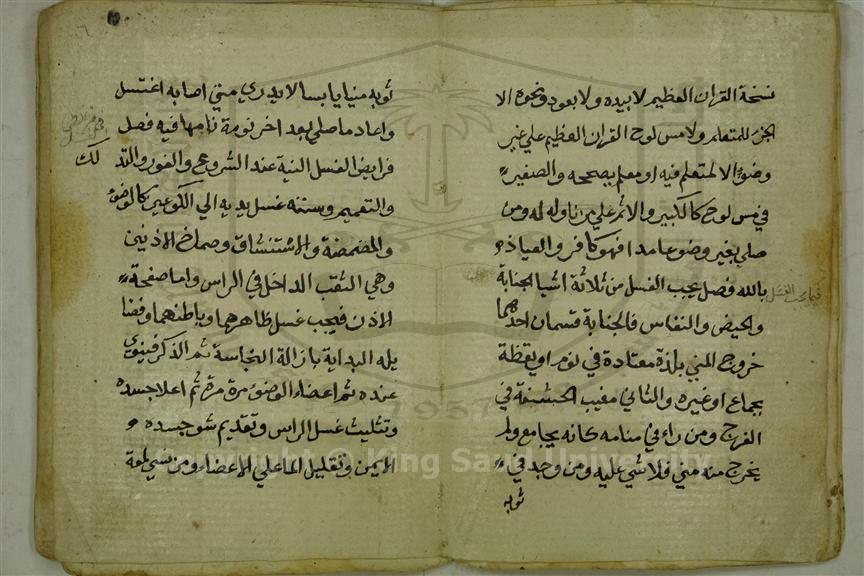 نسخة القران العظيم لا بيده ولا بعود ونحوه الا
الجزء للمتعلم ولا مس لوح القران العظيم علي غير
وضوء الا لمتعلم فيه او معلم يصححه والصغير
في مس لوح كالكبير والاثم علي من ناوله له ومن
صلي بغير وضوء عامدا فهو كافر والعياذ
بالله فصل يجب الغسل من ثلاثة اشيا الجنابة
والحيض والنفاس فالجنابة قسمان احدهما
خروج المني بلذة معتادة في نوم او يقظة
بجماع او غيره والثاني مغيب الحشفة في
الفرج ومن راء في منامه كانه يجامع ولم
يخرج منه مني فلا شي عليه ومن وجد في
ثوبه
فيما يجب الغسل
ثوبه منيا يابسا لا يدري متي اصابه اغتسل
واعاد ما صلي بعد اخر نومة نامها فيه فصل
فرايض الغسل النية عند الشروع والفور والدلك
والتعميم وسننه غسل يديه الي الكوعين كالوضوء
والمضمضة والاستنشاق وصماخ الاذنين
وهي الثقب الداخل في الراس واما صفحة
الاذن فيجب غسل ظاهرهما وباطنهما وفضا
يله البداية بازالة النجاسة ثم الذكر فينوي
عنده ثم اعضاء الوضوء مرة مرة ثم اعلا جسده
وتثليث غسل الراس وتقديم شو جسده
الايمن وتقليل الما علي الاعضاء ومن نسي لمعة
Copyright © King Saud University
1957